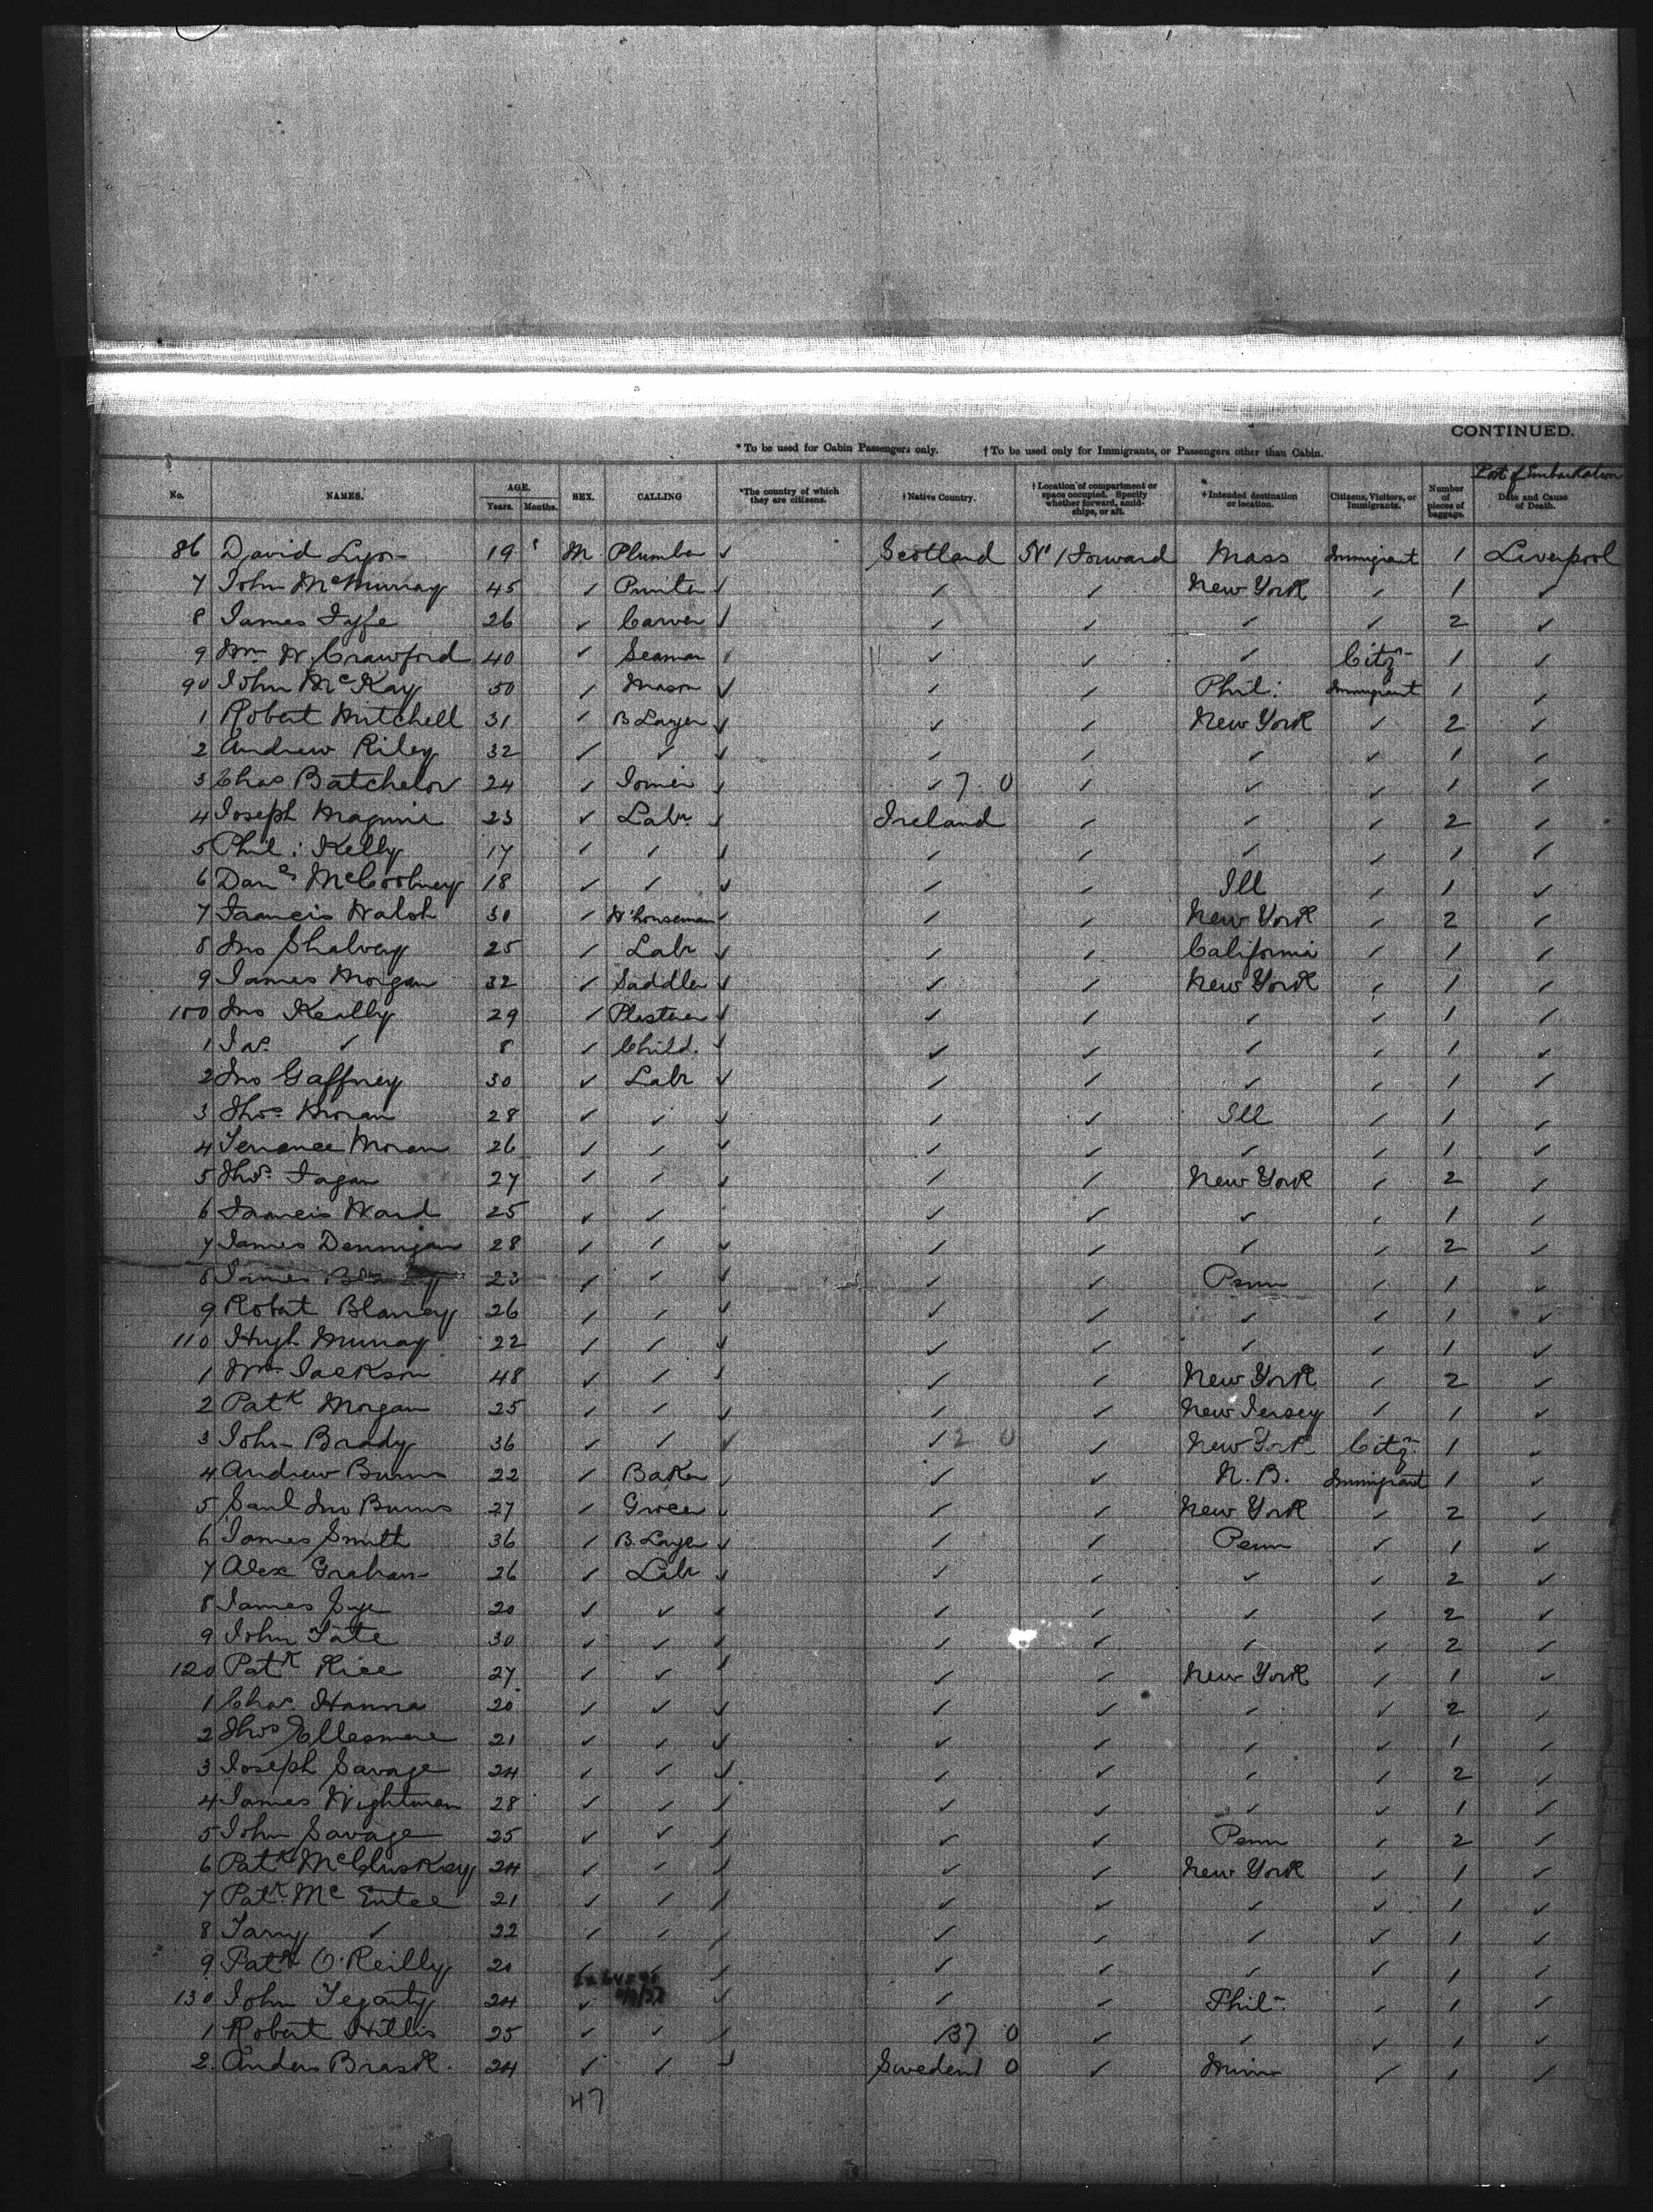 CONTINUED.
*To be used for Cabin Passengers only. †To be used only for Immigrants, or Passengers other than Cabin.
Port of Embarkation
No. NAMES. AGE. Years. Months. SEX. CALLING *The country of which they are citizens. †Native Country. †Location of compartment or space occupied. Specify whether forward, amidships, or aft. †Intended destination or location. Citizens, Visitors, or Immigrants. Number of pieces of baggage. Date and Cause of Death.
86 David Lyon 19 M Plumber ✓ Scotland No 1 Forward Mass Immigrant 1 Liverpool
7 John McMurray 45 ✓ Printer ✓ ✓ ✓ New York ✓ 1 ✓
8 James Fyfe 26 ✓ Carver ✓ ✓ ✓ ✓ ✓ 2 ✓
9 Wm W. Crawford 40 ✓ Seaman ✓ ✓ ✓ Citzn 1 ✓
90 John McKay 50 ✓ Mason ✓ ✓ ✓ Phil: Immigrant 1 ✓
1 Robert Mitchell 31 ✓ B Layer ✓ ✓ ✓ New York ✓ 2 ✓
2 Andrew Riley 32 ✓ ✓ ✓ ✓ ✓ ✓ ✓ 1 ✓
3 Chas Batchelor 24 ✓ Joiner ✓ ✓ 7 0 ✓ ✓ ✓ 1 ✓
4 Joseph Maguire 23 ✓ Labr ✓ Ireland ✓ ✓ ✓ 2 ✓
5 Phil: Kelly 17 ✓ ✓ ✓ ✓ ✓ ✓ ✓ 1 ✓
6 Danl 18 ✓ ✓ ✓ ✓ ✓ Ill ✓ 1 ✓
7 Francis Walsh 30 ✓ W'houseman ✓ ✓ ✓ New York ✓ 2 ✓
8 Jno Shalvey 25 ✓ Labr ✓ ✓ ✓ California ✓ 1 ✓
9 James Morgan 32 ✓ Saddler ✓ ✓ ✓ New York ✓ 1 ✓
100 Jno Keilly 29 ✓ Plasterer ✓ ✓ ✓ ✓ ✓ 1 ✓
1 Jas. ✓ 8 ✓ Child. ✓ ✓ ✓ ✓ ✓ 1 ✓
2 Jno Gaffney 30 ✓ Labr ✓ ✓ ✓ ✓ ✓ 1 ✓
3 Thos. Moran 28 ✓ ✓ ✓ ✓ ✓ Ill ✓ 1 ✓
4 Terrance Moran 26 ✓ ✓ ✓ ✓ ✓ ✓ ✓ 1 ✓
5 Thos. Fagan 27 ✓ ✓ ✓ ✓ ✓ New York ✓ 2 ✓
6 Francis Ward 25 ✓ ✓ ✓ ✓ ✓ ✓ 1 ✓
7 James Dennigan 28 ✓ ✓ ✓ ✓ ✓ ✓ ✓ 2 ✓
8 James 23 ✓ ✓ ✓ ✓ ✓ Penn ✓ 1 ✓
9 Robert Blaney 26 ✓ ✓ ✓ ✓ ✓ ✓ ✓ 1 ✓
110 Hugh Murray 22 ✓ ✓ ✓ ✓ ✓ ✓ ✓ 1 ✓
1 Wm Jackson 48 ✓ ✓ ✓ ✓ ✓ New York ✓ 2 ✓
2 Patk Morgan 25 ✓ ✓ ✓ ✓ ✓ New Jersey ✓ 1 ✓
3 John Brady 36 ✓ ✓ ✓ ✓ 2 0 ✓ New York Citzn 1 ✓
4 Andrew Burns 22 ✓ Baker ✓ ✓ ✓ N. B. Immigrant 1 ✓
5 Saml Jno Burns 27 ✓ Grocer ✓ ✓ ✓ New York ✓ 2 ✓
6 James Smith 36 ✓ B. Layer ✓ ✓ ✓ Penn ✓ 1 ✓
7 Alex Graham 26 ✓ Labr ✓ ✓ ✓ ✓ ✓ 2 ✓
8 James 20 ✓ ✓ ✓ ✓ ✓ ✓ ✓ 2 ✓
9 John Tate 30 ✓ ✓ ✓ ✓ ✓ ✓ ✓ 2 ✓
120 Patk Rice 27 ✓ ✓ ✓ ✓ ✓ New York ✓ 1 ✓
1 Chas. Hanna 20 ✓ ✓ ✓ ✓ ✓ ✓ ✓ 2 ✓
2 Thos Ellesmere 21 ✓ ✓ ✓ ✓ ✓ ✓ ✓ 1 ✓
3 Joseph Savage 24 ✓ ✓ ✓ ✓ ✓ ✓ ✓ 2 ✓
4 James Wightman 28 ✓ ✓ ✓ ✓ ✓ ✓ ✓ 1 ✓
5 John Savage 25 ✓ ✓ ✓ ✓ ✓ Penn ✓ 2 ✓
6 Patk McCluskey 24 ✓ ✓ ✓ ✓ ✓ New York ✓ 1 ✓
7 Patk. Mc Entee 21 ✓ ✓ ✓ ✓ ✓ ✓ ✓ 1 ✓
8 ✓ 22 ✓ ✓ ✓ ✓ ✓ ✓ ✓ 1 ✓
9 Patk O'Reilly 20 ✓ ✓ ✓ ✓ ✓ ✓ 1 ✓
130 John Fegarty 24 ✓ ✓ ✓ ✓ Phil. ✓ 1 ✓
1 Robert Willis 25 ✓ ✓ ✓ ✓ 37 0 ✓ ✓ ✓ 1 ✓
2. Anders Brask. 24 ✓ ✓ ✓ Sweden 1 0 ✓ Minn ✓ 1 ✓
47